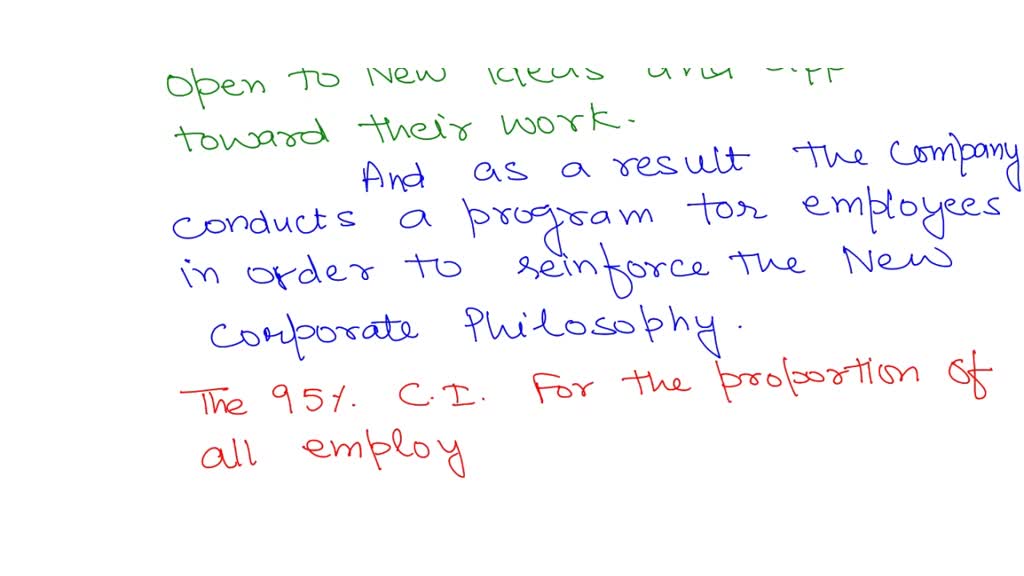 open to New ideas and
toward their work.
And as a result the company
conducts a program for employees
in order to reinforce the New
corporate Philosophy.
The 95%. C.I. For the proportion of
all employ